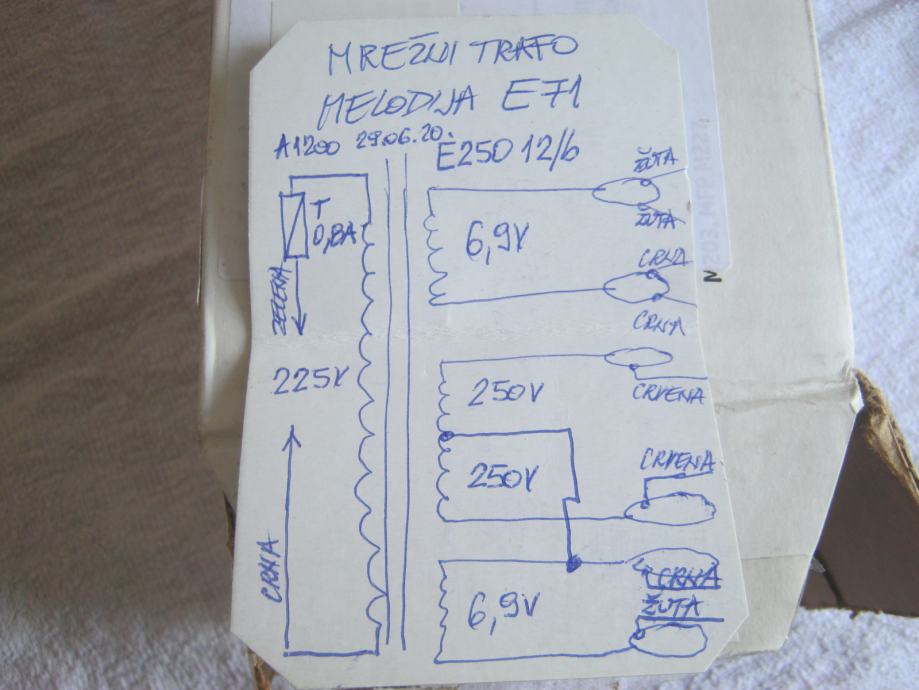 MREŽNI TRAFO
MELODIJA E71
A1200 29.06.20.
E250 12/6
ŽUTA
T
0,8A
6,9V
ŽUTA
ZELENA
CRNA
CRNA
225V
250V
CRVENA
250V
CRVENA
CRNA
6,9V
CRNA
ŽUTA